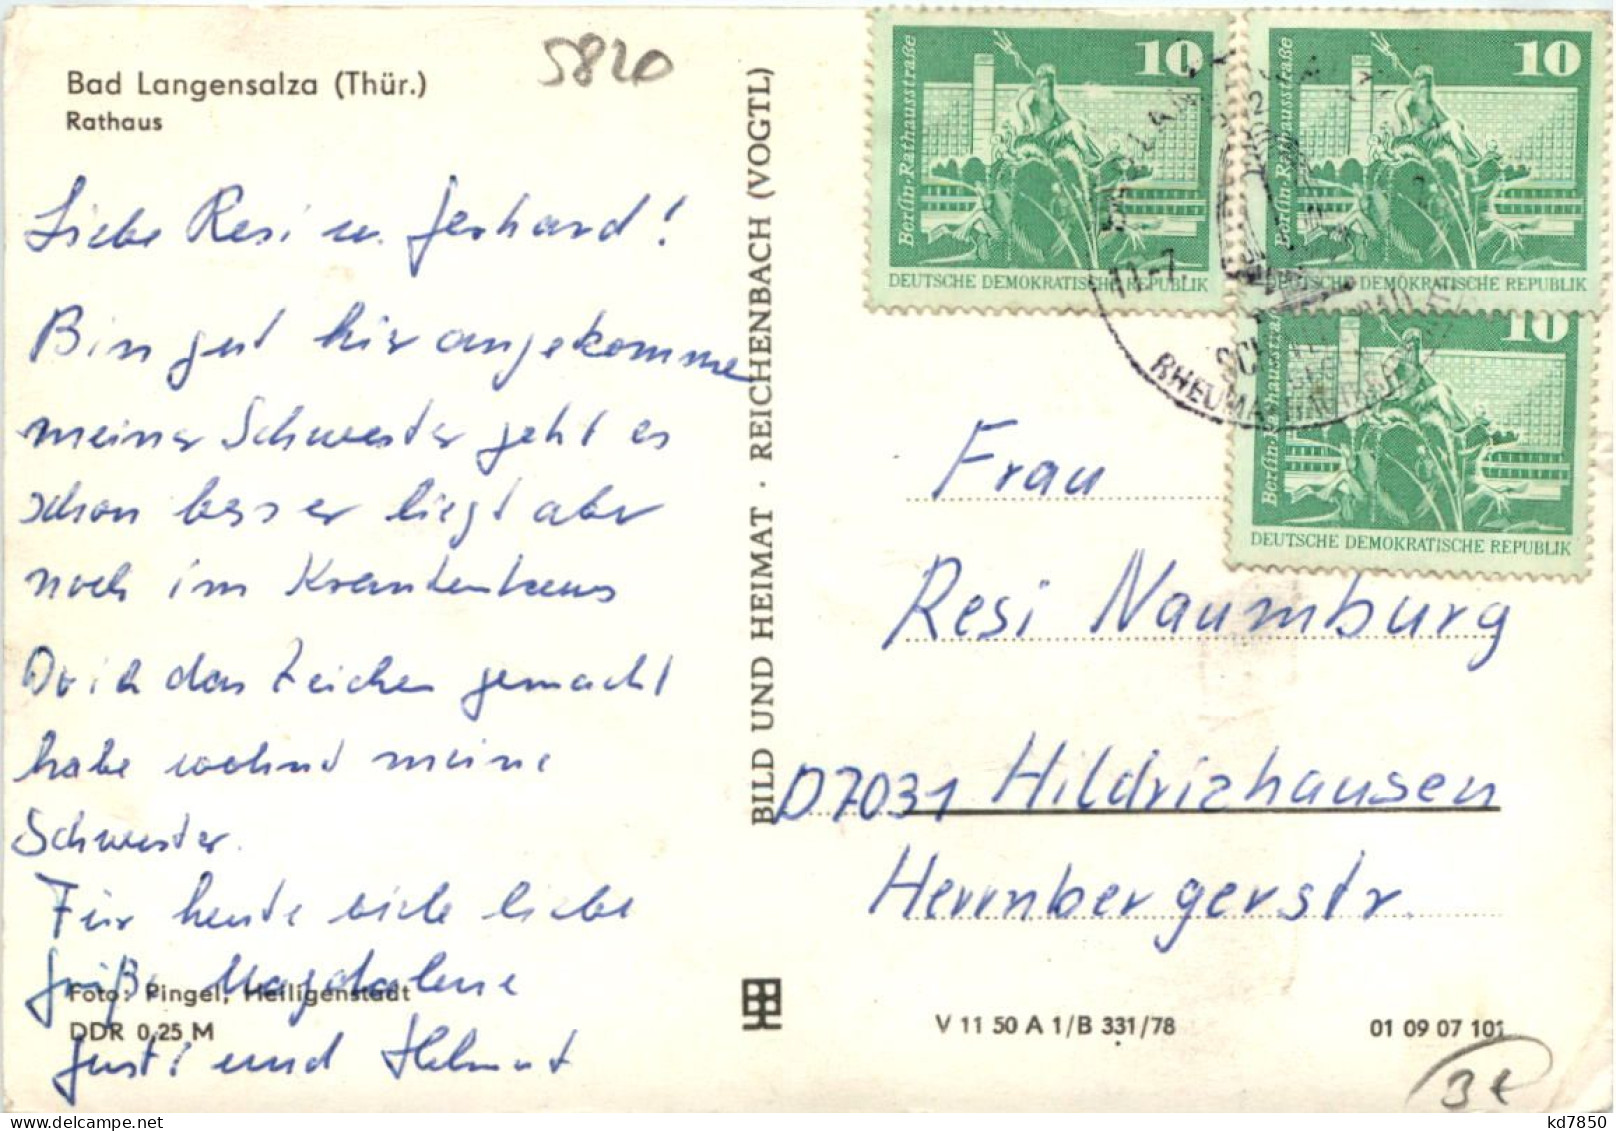 5820
Bad Langensalza (Thür.)
Rathaus
Liebe Resi u. Gerhard!
Bin gut hir angekomme
meiner Schwester geht es
schon besser liegt aber
noch im Krankenhaus
Do ich das Zeichen gemacht
habe wohnt meine
Schwester.
Für heute viele liebe
Grüße Magdalene
Gusti und Helmut
Foto: Pingel, Heiligenstadt
DDR 0,25 M
BILD UND HEIMAT · REICHENBACH (VOGTL)
10
Berlin-Rathausstraße
DEUTSCHE DEMOKRATISCHE REPUBLIK
10
Berlin-Rathausstraße
DEUTSCHE DEMOKRATISCHE REPUBLIK
10
Berlin-Rathausstraße
DEUTSCHE DEMOKRATISCHE REPUBLIK
11.-7
Frau
Resi Naumburg
D7031 Hildrizhausen
Herrnbergerstr.
V 11 50 A 1/B 331/78
01 09 07 101
3€
kd7850